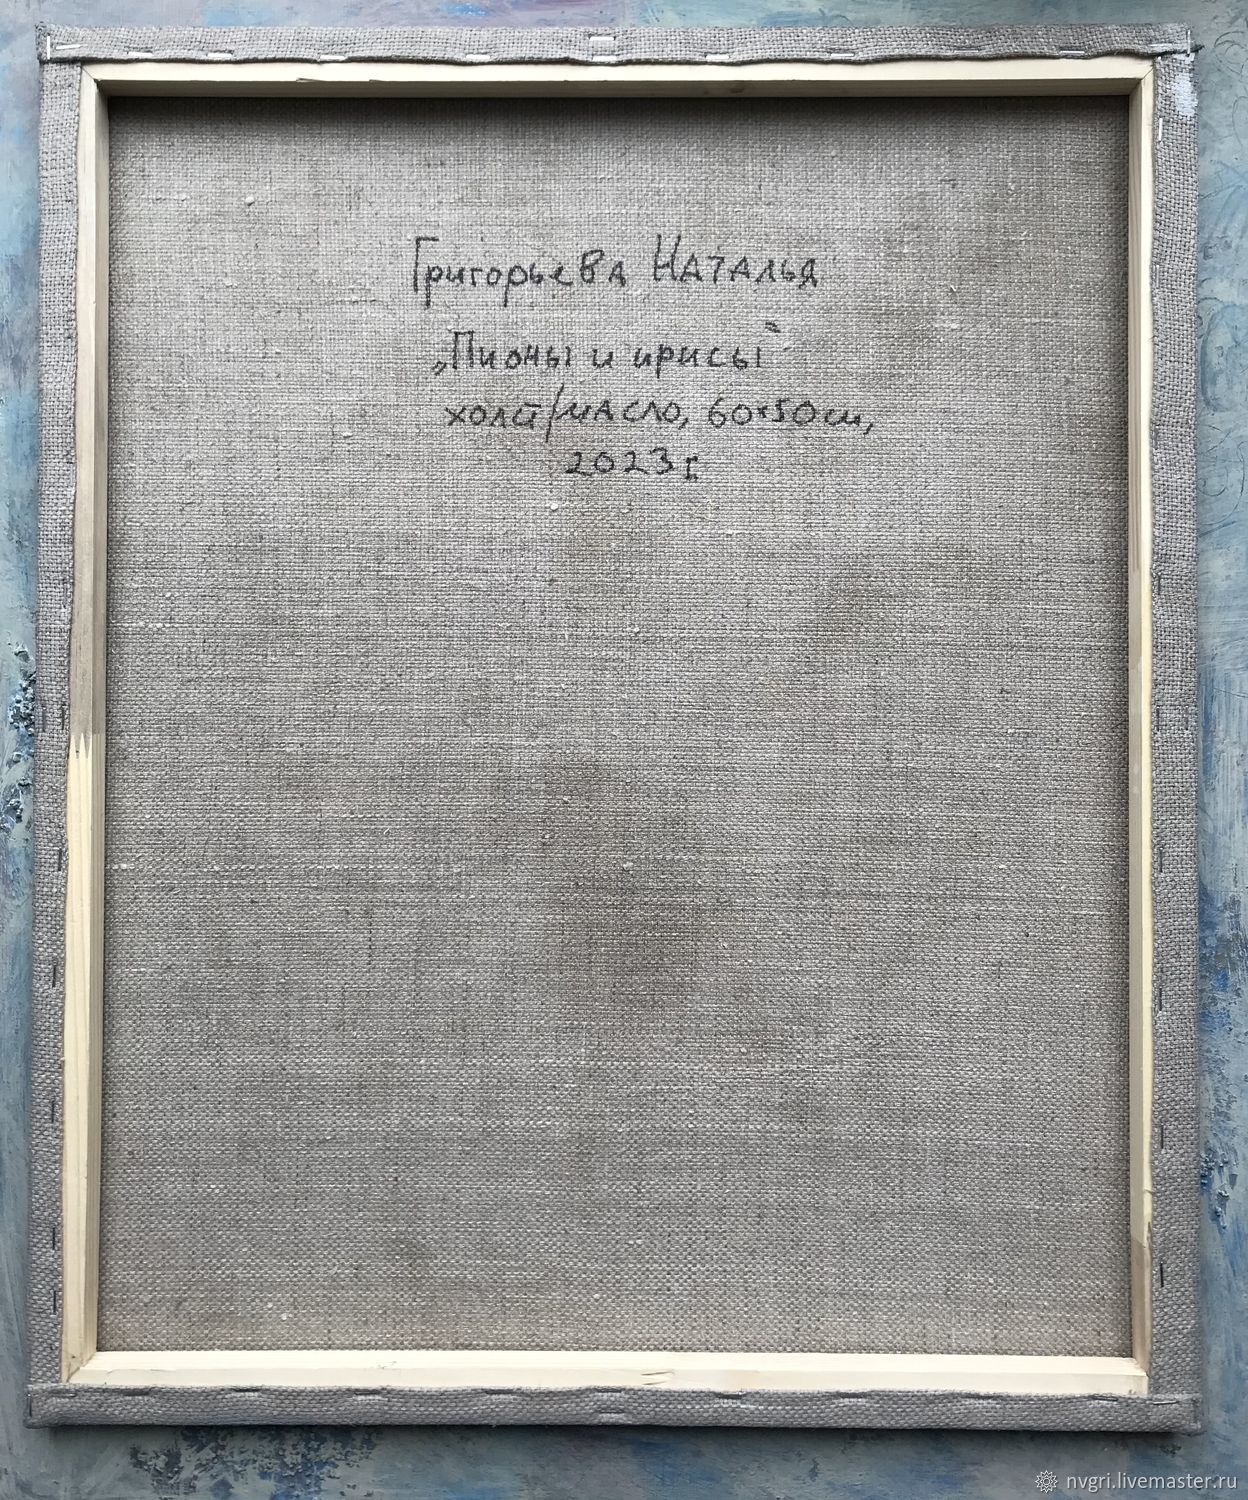 Григорьева Наталья
„Пионы и ирисы"
холст/масло, 60×50см,
2023г.
nvgri.livemaster.ru